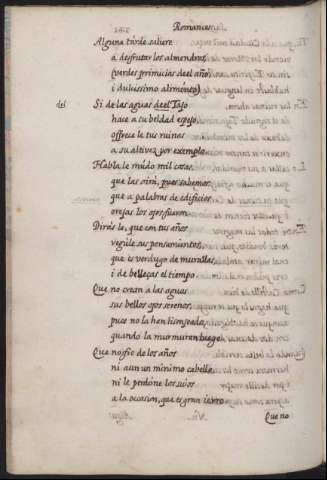 Romances
Alguna tarde saliere
a desfrutar los almendros,
(verdes primicias deel año
i dulcissimo alimento)
del Si de las aguas deel Tajo
hace a su beldad espejo,
offrece le tus ruinas
a su altivez por exemplo.
Habla le mudo mil cosas,
que las oirà, pues sabemos,
que a palabras de edificios
orejas los ojos fueron.
Dirás le, que con tus años
regule sus pensamientos,
que es verdugo de murallas,
i de belleças el tiempo
Que no crean a las aguas
sus bellos ojos serenos,
pues no la han lisongeado,
quando la murmuran luego.
Que no fie de los años
ni aun un minimo cabello,
ni le perdone los suios
a la occasion, que es gran ierro
Que no